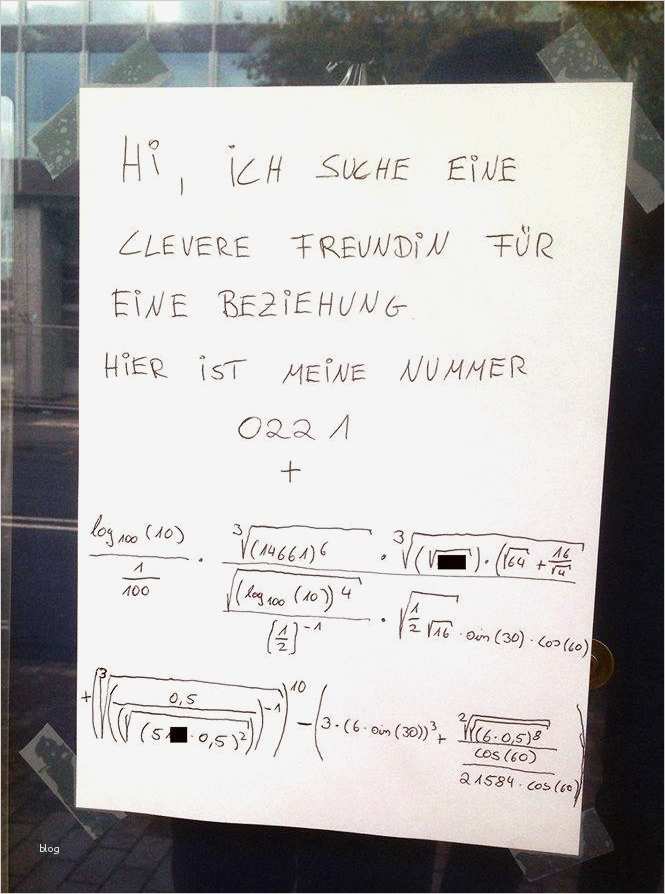 Hi, ICH SUCHE EINE
CLEVERE FREUNDIN FÜR
EINE BEZIEHUNG.
HIER IST MEINE NUMMER
0221
+
log₁₀₀(10) / (1/100) · ∛(14661)⁶ · ∛(√ ) · (√64 + 16/√4)
√(log₁₀₀(10))⁴ / [1/2]⁻¹ · √(1/2 √16 · sin(30) · cos(60)
+ (∛((0,5 / (√(51 · 0,5)²))⁻¹))¹⁰ − (3 · (6 · sin(30))³ + ²√√(6 · 0,5)⁸ / cos(60) / 21584 · cos(60))
blog